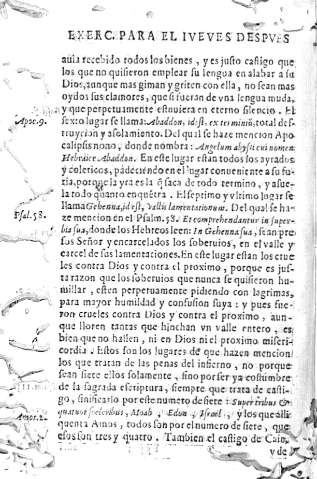 EXERC. PARA EL IVEVES DESPVES
auia recebido todos los bienes, y es justo castigo que
los que no quisieron emplear su lengua en alabar a su
Dios, aunque mas giman y griten con ella, no sean mas
oydos sus clamores, que si fueran de vna lengua muda,
y que perpetuamente estuuiera en eterno silencio. El
Apoc. 9.
sexto lugar se llama: Abaddon, id est, exterminiũ, total des-
truycion y asolamiento. Del qual se haze mencion Apo-
calipsis nono, donde nombra: Angelum abyssi cui nomen
Hebraice Abaddon. En este lugar estan todos los ayrados
y colericos, padeciendo en el lugar conueniente a su fu-
ria, porque la yra es la q̃ saca de todo termino, y asue-
la todo quanto encuẽtra. El septimo y vltimo lugar se
llama Gehenna, id est, Vallis lamentationum. Del qual se ha-
Psal. 58.
ze mencion en el Psalm. 58. Et comprehendantur in super-
bia sua, donde los Hebreos leen: In Gehenna sua, sean pre-
sos Señor y encarcelados los soberuios, en el valle y
carcel de sus lamentaciones. En este lugar estan los crue
les contra Dios y contra el proximo, porque es jus-
ta razon que los soberuios que nunca se quisieron hu-
millar, esten perpetuamente pidendo con lagrimas,
para mayor humildad y confusion suya: y pues fue-
ron crueles contra Dios y contra el proximo, aun-
que lloren tantas que hinchan vn valle entero, es
bien que no hallen, ni en Dios ni el proximo miseri-
cordia. Estos son los lugares de que hazen mencion
los que tratan de las penas del infierno, no porque
sean siete ellos solamente, sino por ser ya costumbre
de la sagrada escriptura, siempre que trata de casti-
go, sinificarlo por este numero de siete: Super tribus &
Amos. 2.
quatuor sceleribus, Moab, Edon, Israel, y los que alli
quenta Amos, todos son por el numero de siete, que
esos son tres y quatro. Tambien el castigo de Cain,
y de